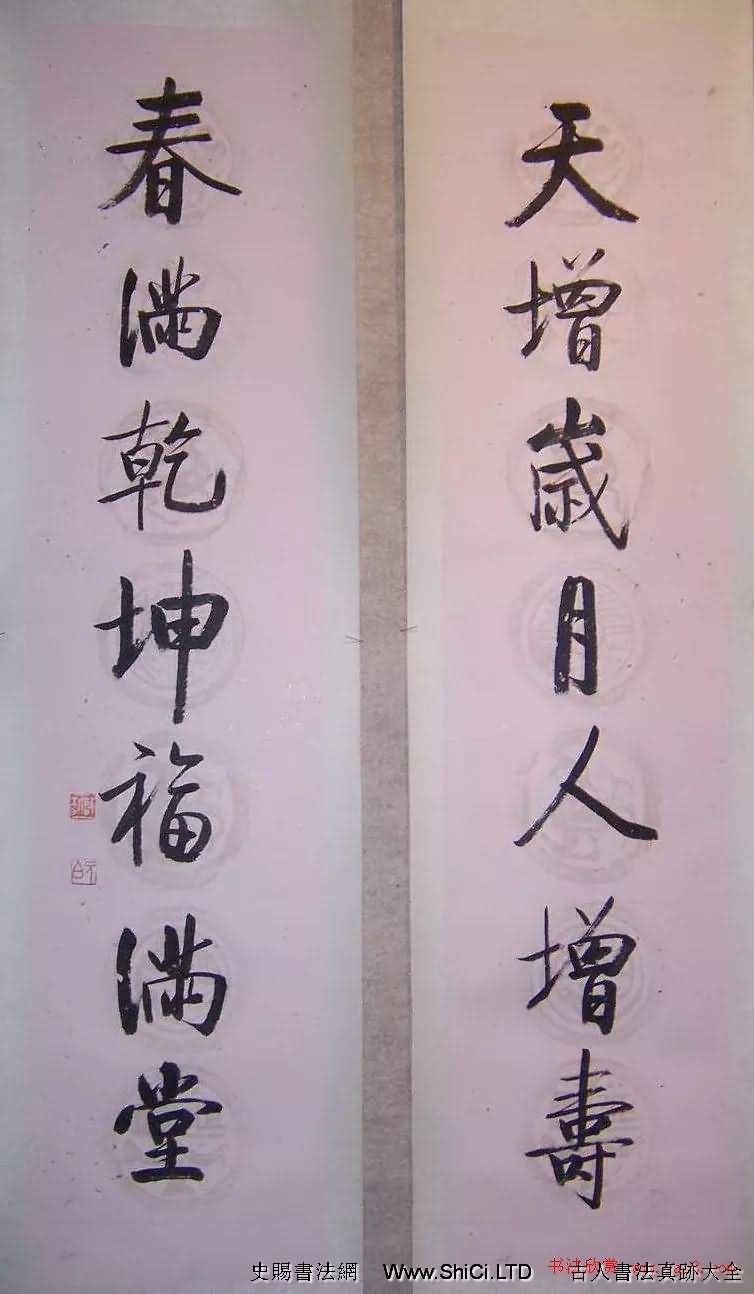 天增歲月人增壽
春滿乾坤福滿堂
史賜書法網 Www.ShiCi.LTD 古人書法真跡大全
书法欣赏